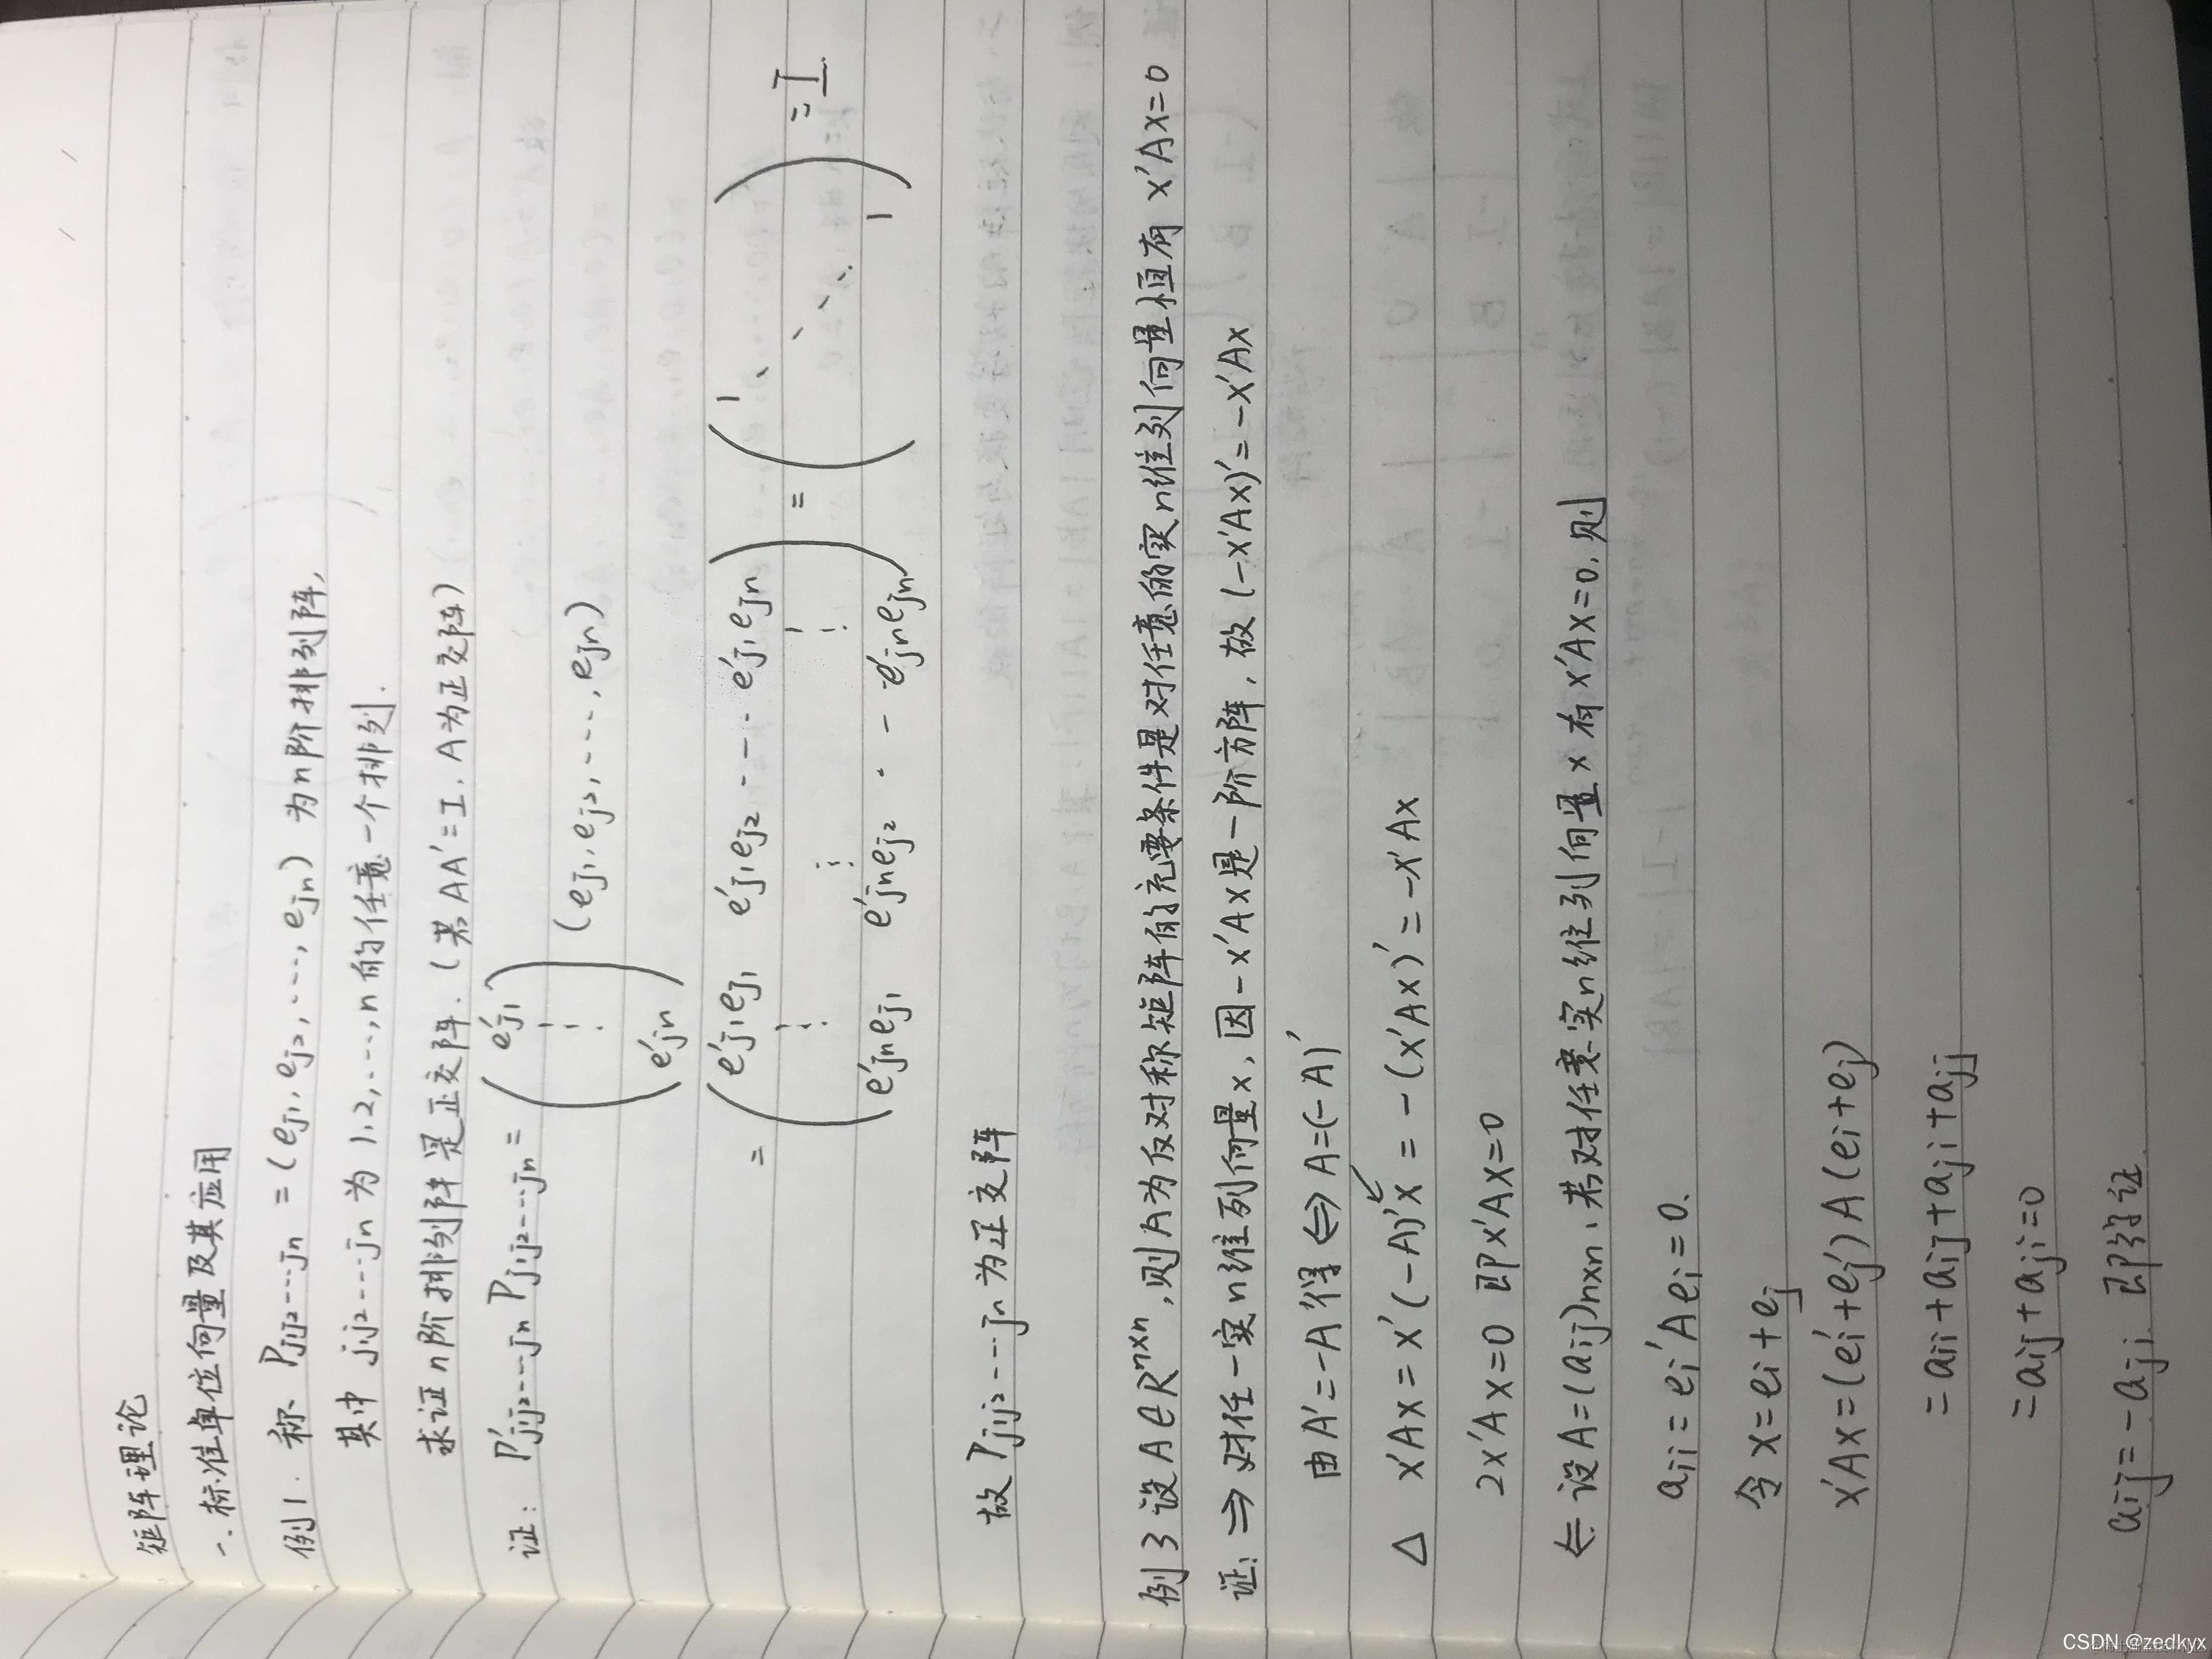 矩阵理论
一.标准单位向量及其应用
例1. 称 Pj1j2···jn = (ej1, ej2, ···, ejn) 为n阶排列阵,
其中 j1j2···jn 为 1.2,···,n的任意一个排列.
求证n阶排列阵是正交阵. (若AA'=I. A为正交阵)
证: P'j1j2···jn Pj1j2···jn = (e'j1 ⋮ e'jn) (ej1, ej2, ···, ejn)
= (e'j1ej1 e'j1ej2 ··· e'j1ejn ⋮ ⋮ ⋮ e'jnej1 e'jnej2 ··· e'jnejn) = (1 ⋱ 1) = I
故 Pj1j2···jn 为正交阵
例3 设A∈R^{n×n}, 则A为反对称矩阵的充要条件是对任意的实n维列向量恒有 x'Ax=0
证: ⇒ 对任一实n维列向量x, 因-x'Ax是一阶方阵, 故 (-x'Ax)'=-x'Ax
由A'=-A得 ⇔ A=(-A)'
△ x'Ax = x'(-A)'x = -(x'Ax)' = -x'Ax
2x'Ax=0 即x'Ax=0
⇐ 设A=(aij)n×n, 若对任意实n维列向量x 有x'Ax=0, 则
aii = ei'Aei=0.
令x=ei+ej
x'Ax=(ei'+ej')A(ei+ej)
=aii+aij+aji+ajj
=aij+aji=0
aij=-aji. 即得证
CSDN @zedkyx